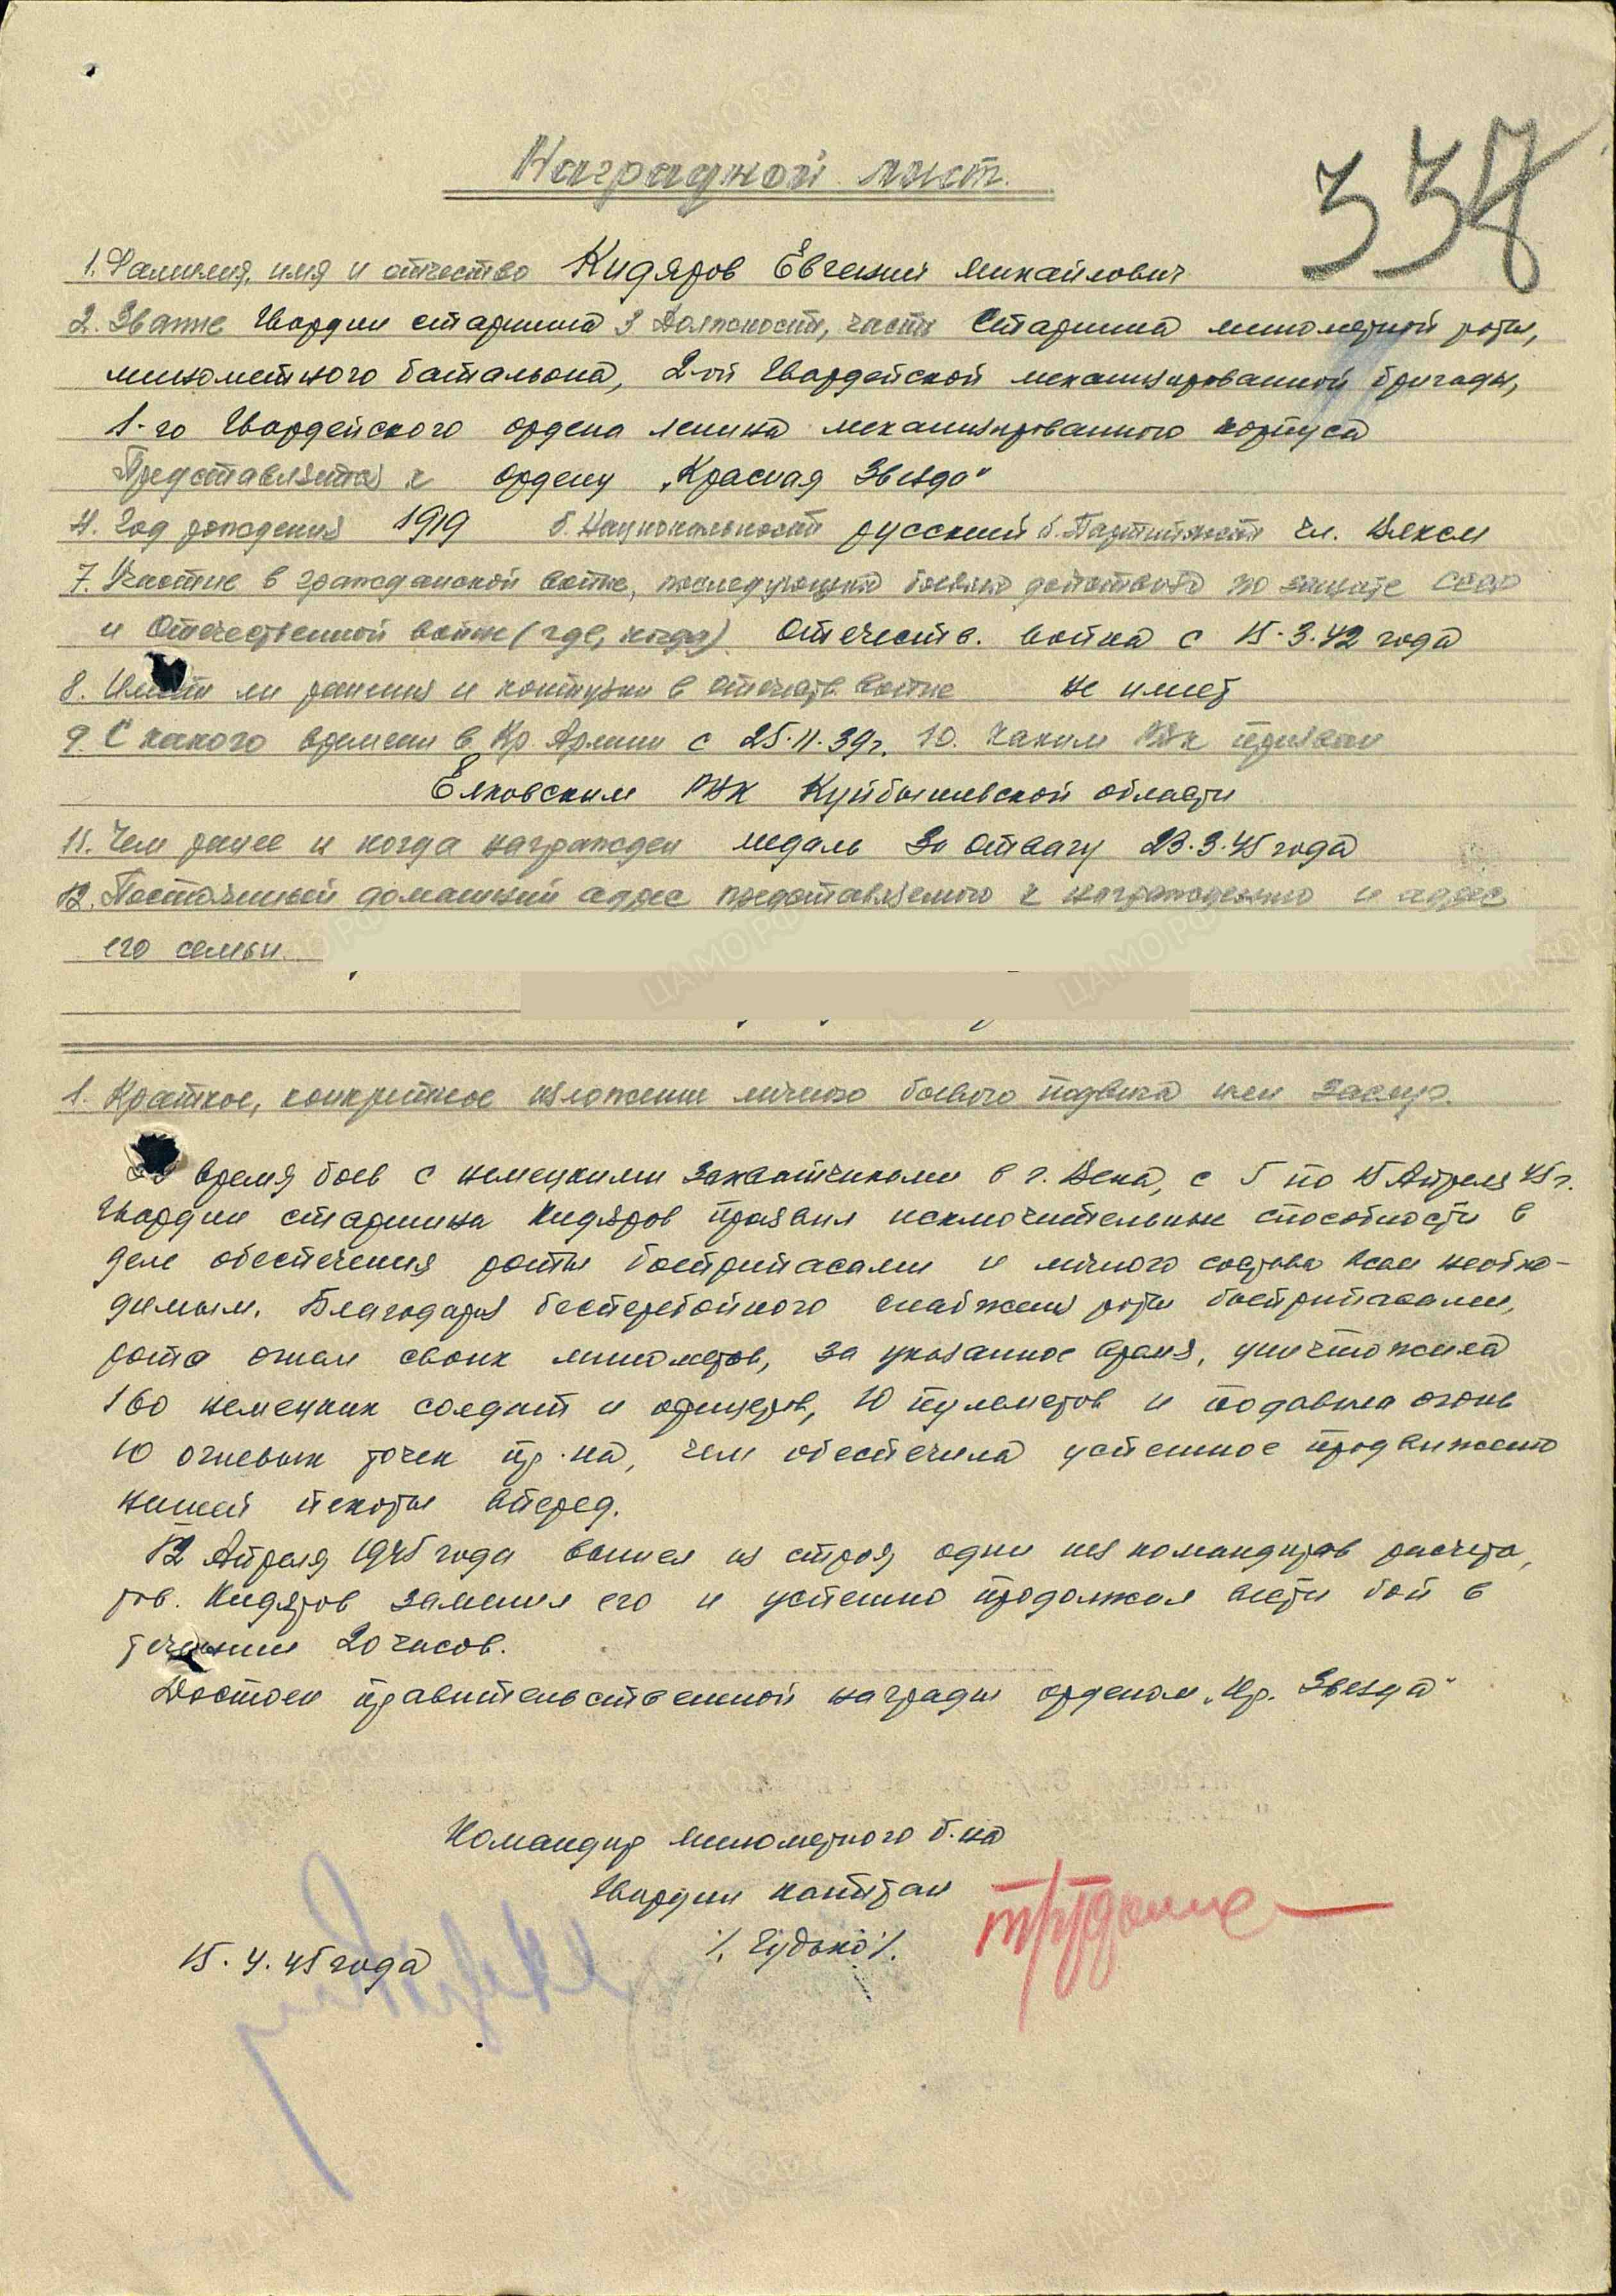 337
Наградной лист.
1. Фамилия, имя и отчество Кидяров Евгений Михайлович
2. Звание Гвардии старшина 3 Должность, часть Старшина минометной роты,
минометного батальона, 2-ой Гвардейской механизированной бригады,
1-го Гвардейского ордена Ленина механизированного корпуса
Представляется к ордену „Красная Звезда"
4. Год рождения 1919 5. Национальность русский 6. Партийность чл. ВЛКСМ
7. Участие в гражданской войне, последующих боевых действиях по защите СССР
и Отечественной войне (где, когда) Отечеств. война с 15.3.42 года
8. Имеет ли ранения и контузии в отечеств. войне не имеет
9. С какого времени в Кр. Армии с 25.11.39г. 10. Каким РВК призван
Елховским РВК Куйбышевской области
11. Чем ранее и когда награжден медаль За отвагу 23.3.45 года
12. Постоянный домашний адрес представляемого к награждению и адрес
его семьи.
1. Краткое, конкретное изложение личного боевого подвига или заслуг.
Во время боев с немецкими захватчиками в г. Вена, с 5 по 15 Апреля 45 г.
Гвардии старшина Кидяров проявил исключительные способности в
деле обеспечения роты боеприпасами и личного состава всем необхо-
димым. Благодаря бесперебойного снабжения роты боеприпасами,
рота огнем своих минометов, за указанное время, уничтожила
160 немецких солдат и офицеров, 10 пулеметов и подавила огонь
10 огневых точек пр-ка, чем обеспечила успешное продвижение
нашей пехоты вперед.
12 Апреля 1945 года вышел из строя один из командиров расчета,
тов. Кидяров заменил его и успешно продолжал вести бой в
течении 20 часов.
Достоен правительственной награды орденом „Кр. Звезда"
Командир минометного б-на
Гвардии капитан
/. Гудько /.
15.4.45 года
ЦАМО.РФ